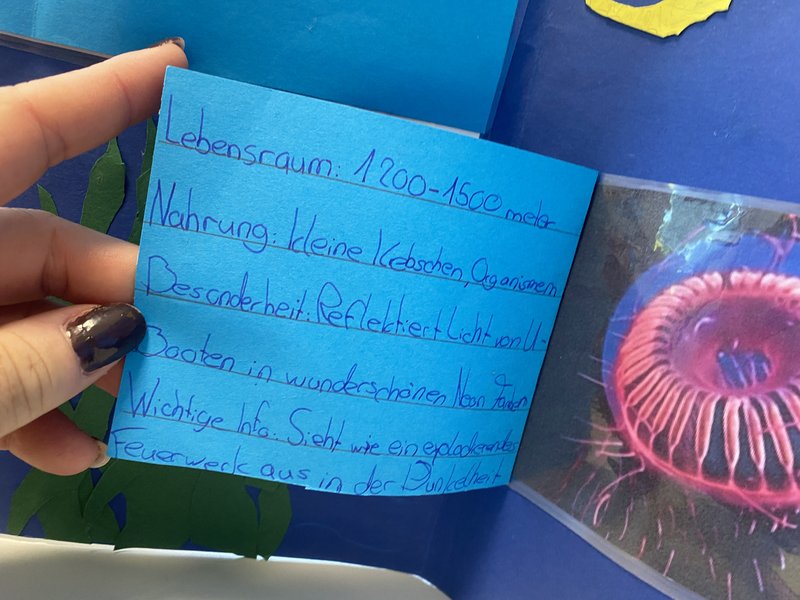 Lebensraum: 1200-1500 meter
Nahrung: kleine Krebschen, Organismen
Besonderheit: Reflektiert Licht von U-
Booten in wunderschönen Neon Farben
Wichtige Info: Sieht wie ein explodierendes
Feuerwerk aus in der Dunkelheit